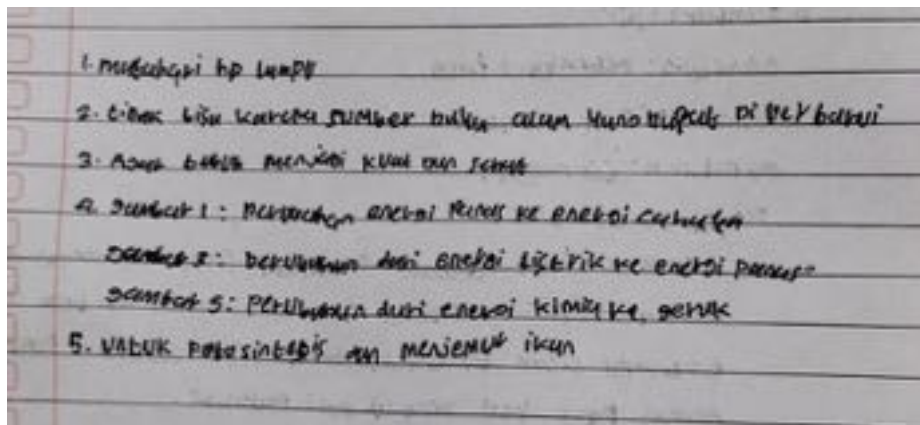 1. matahari hp lampu
2. tidak bisa karena sumber bukan alam yang di perbarui
3. Agar menjadi kuat dan sehat
4. gambar 1: perubahan energi Panas ke energi cahaya
gambar : berubahan dari energi listirik ke energi panas
gambar 3: Perubahan dari energi kimia ke gerak
5. untuk Potosintesis dan menjemur ikan